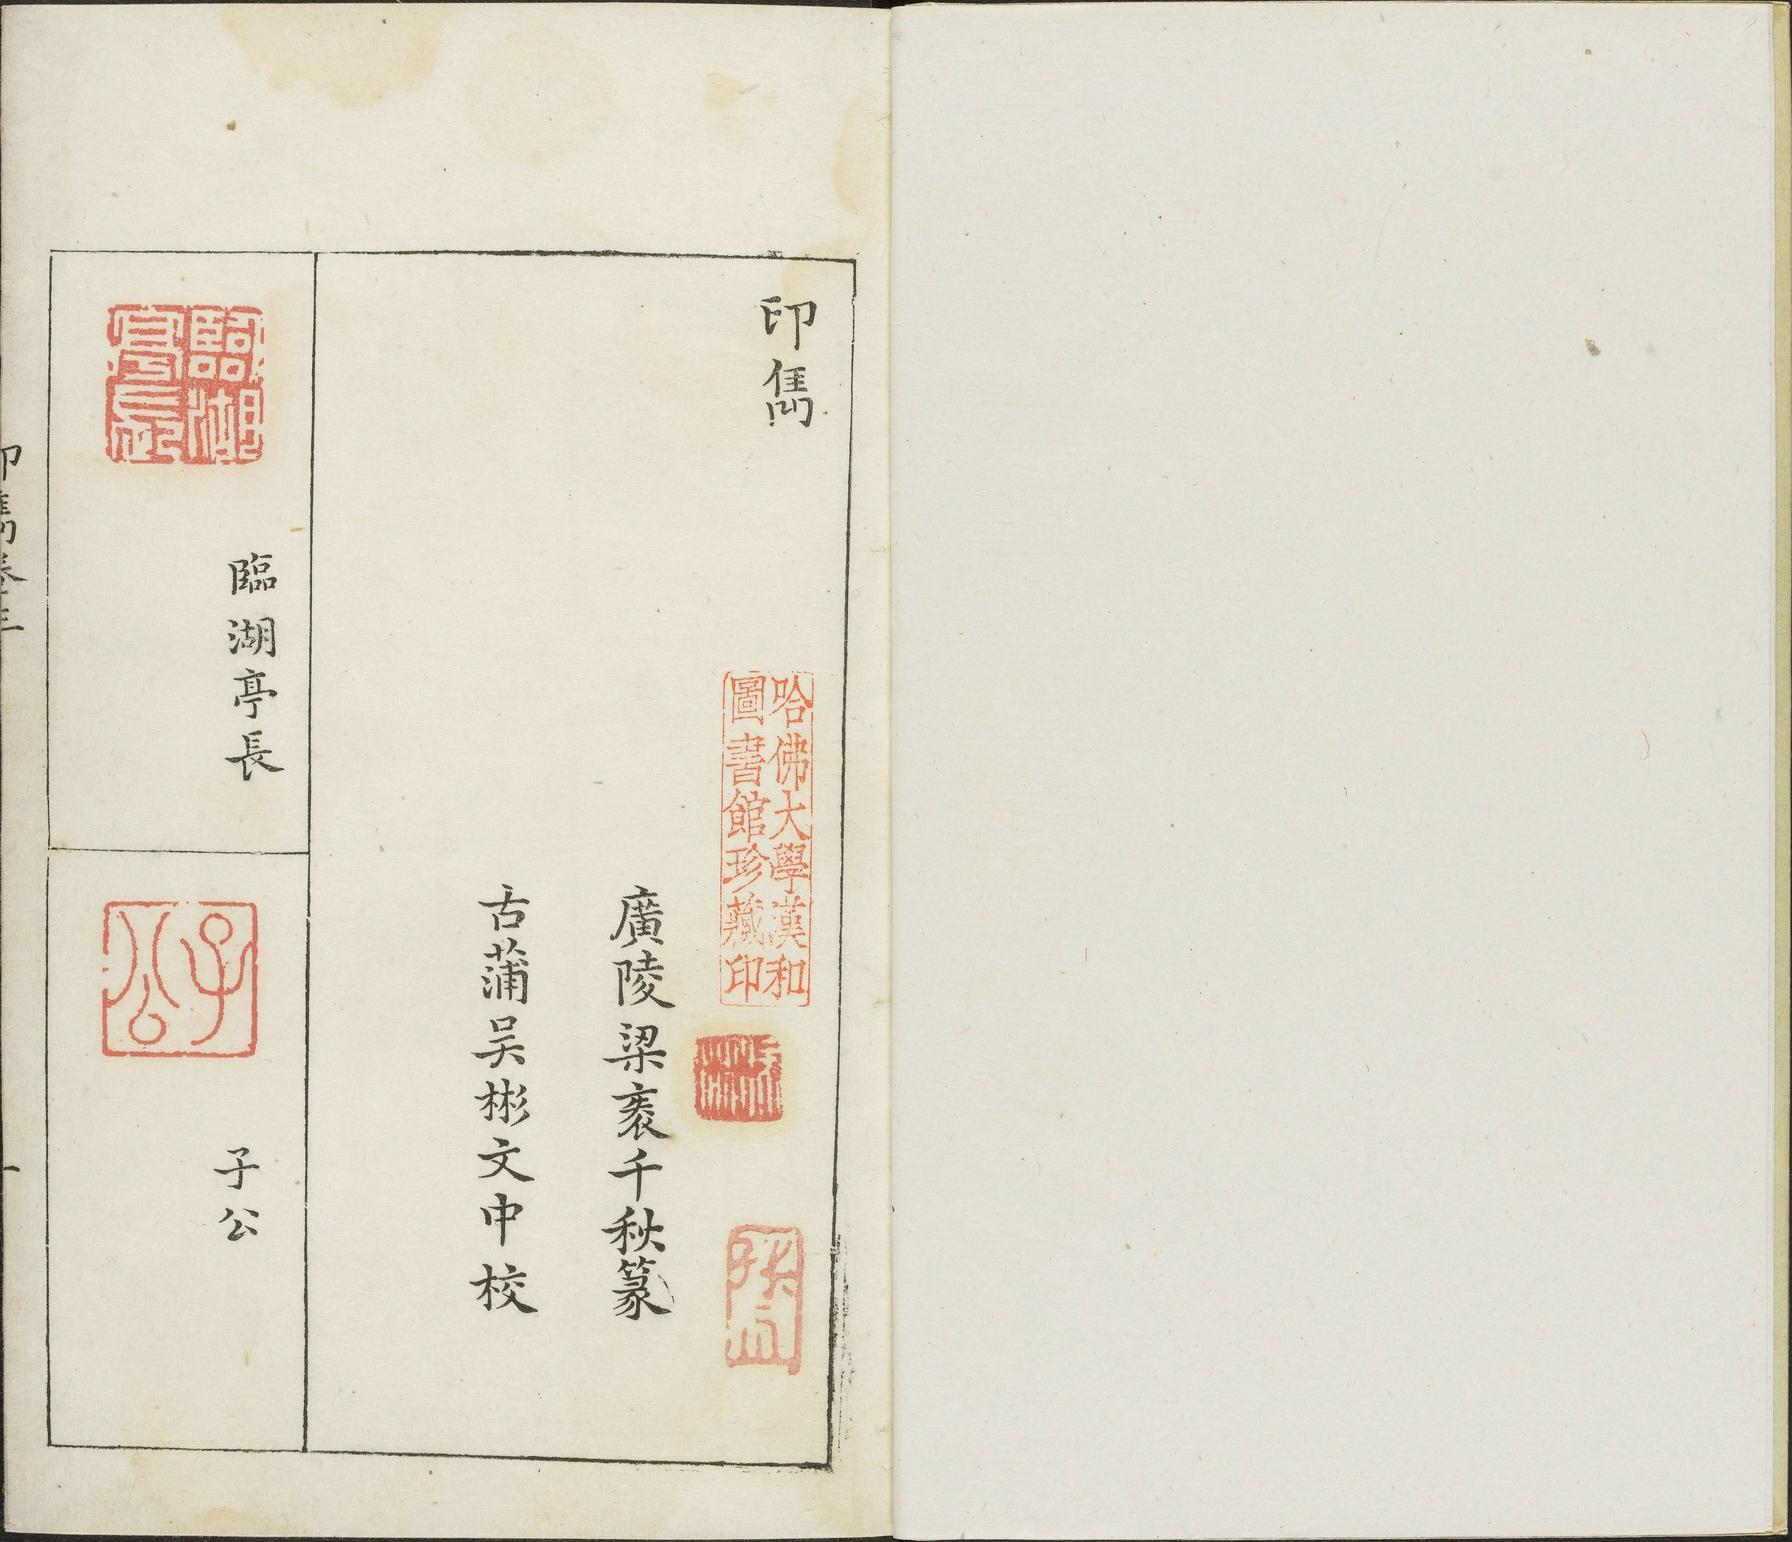 印雋
哈佛大學漢和
圖書館珍藏印
廣陵梁袠千秋篆
古蒲吴彬文中校
臨湖亭長
臨湖亭長
子公
子公
印雋卷三
一